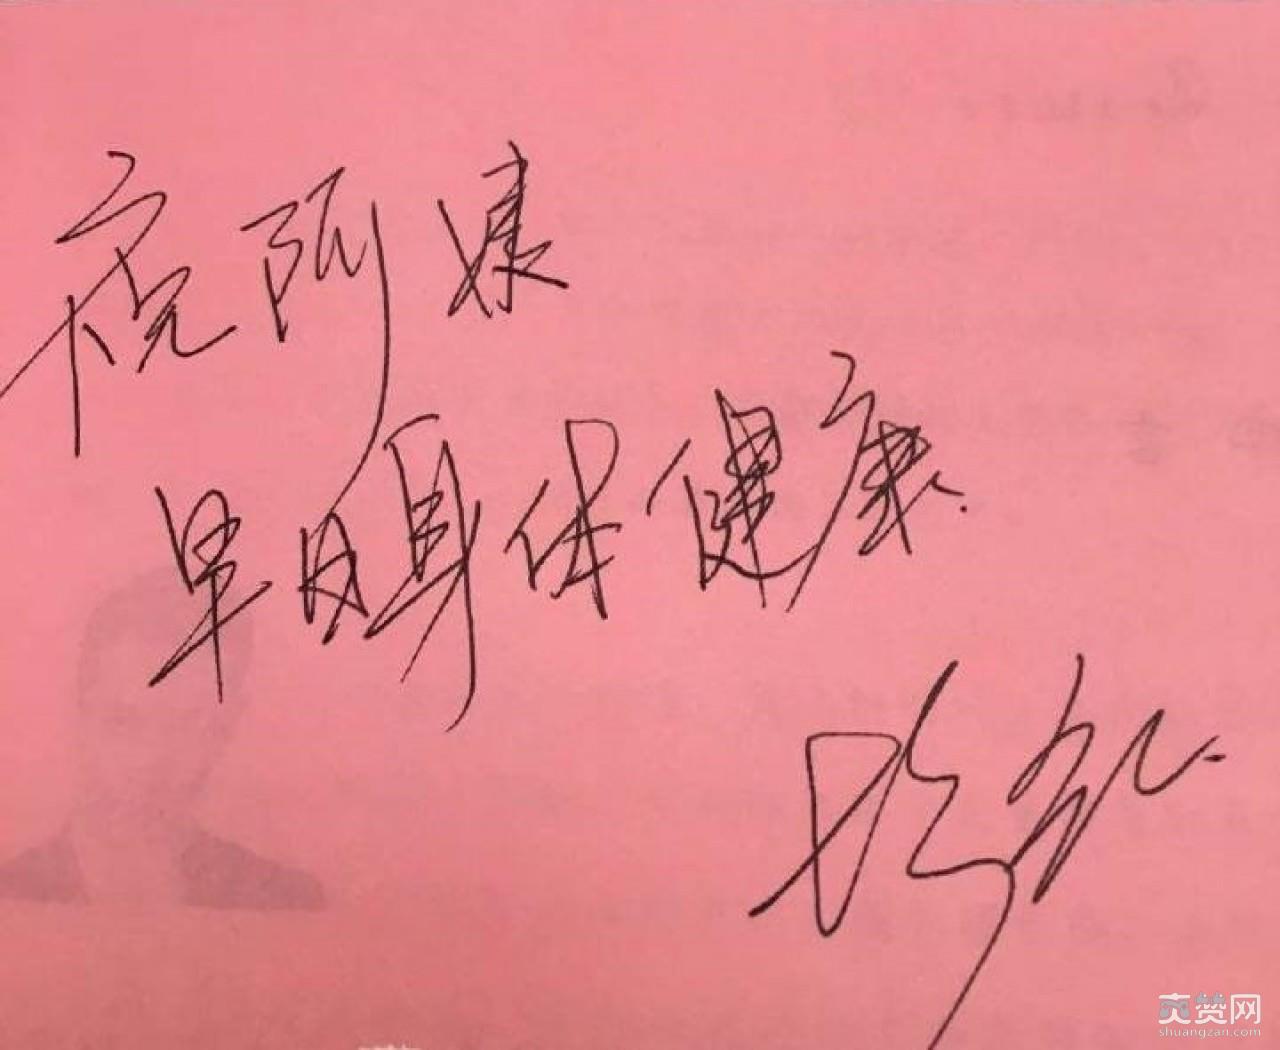 祝阿姨
早日身体健康.
爽赞网
shuangzan.com